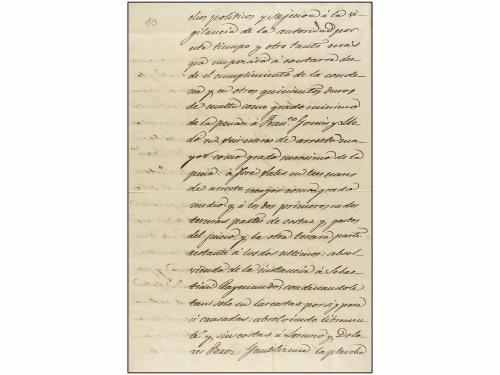 10
chos políticos y sujecion á la vi-
gilancia de la autoridad por
este tiempo y otro tanto mas
que empezará á contarse des-
de el cumplimiento de la conde-
na y en otros quinientos duros
de multa como grado minimo
de la pena: á Franco. Garcia y
en seis meses de arresto ma-
yor como grado maximo de la
pena: á José Sales en tres meses
de arresto mayor como grado
medio, y á los dos primeros en dos
terceras partes de costas y gastos
del juicio, y la otra tercera parte
restante á los dos ultimos: absol-
viendo de la instancia á Sebas-
tian Raymundo condenandole
tan solo en las costas por si y para
si causadas: absolviendo libremen-
te y sin costas á y Dolo-
res la plancha